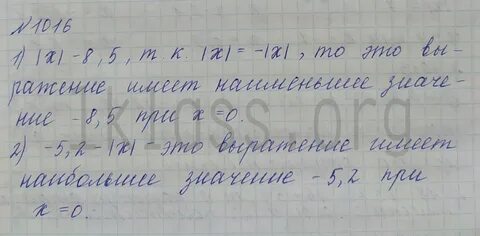 №1016
1) |x| -8,5, т.к. |x| = -|x|, то это вы-
ражение имеет наименьшее значе-
ние -8,5 при x=0.
2) -5,2 -|x| - это выражение имеет
наибольшее значение -5,2 при
x=0.
1klass.org